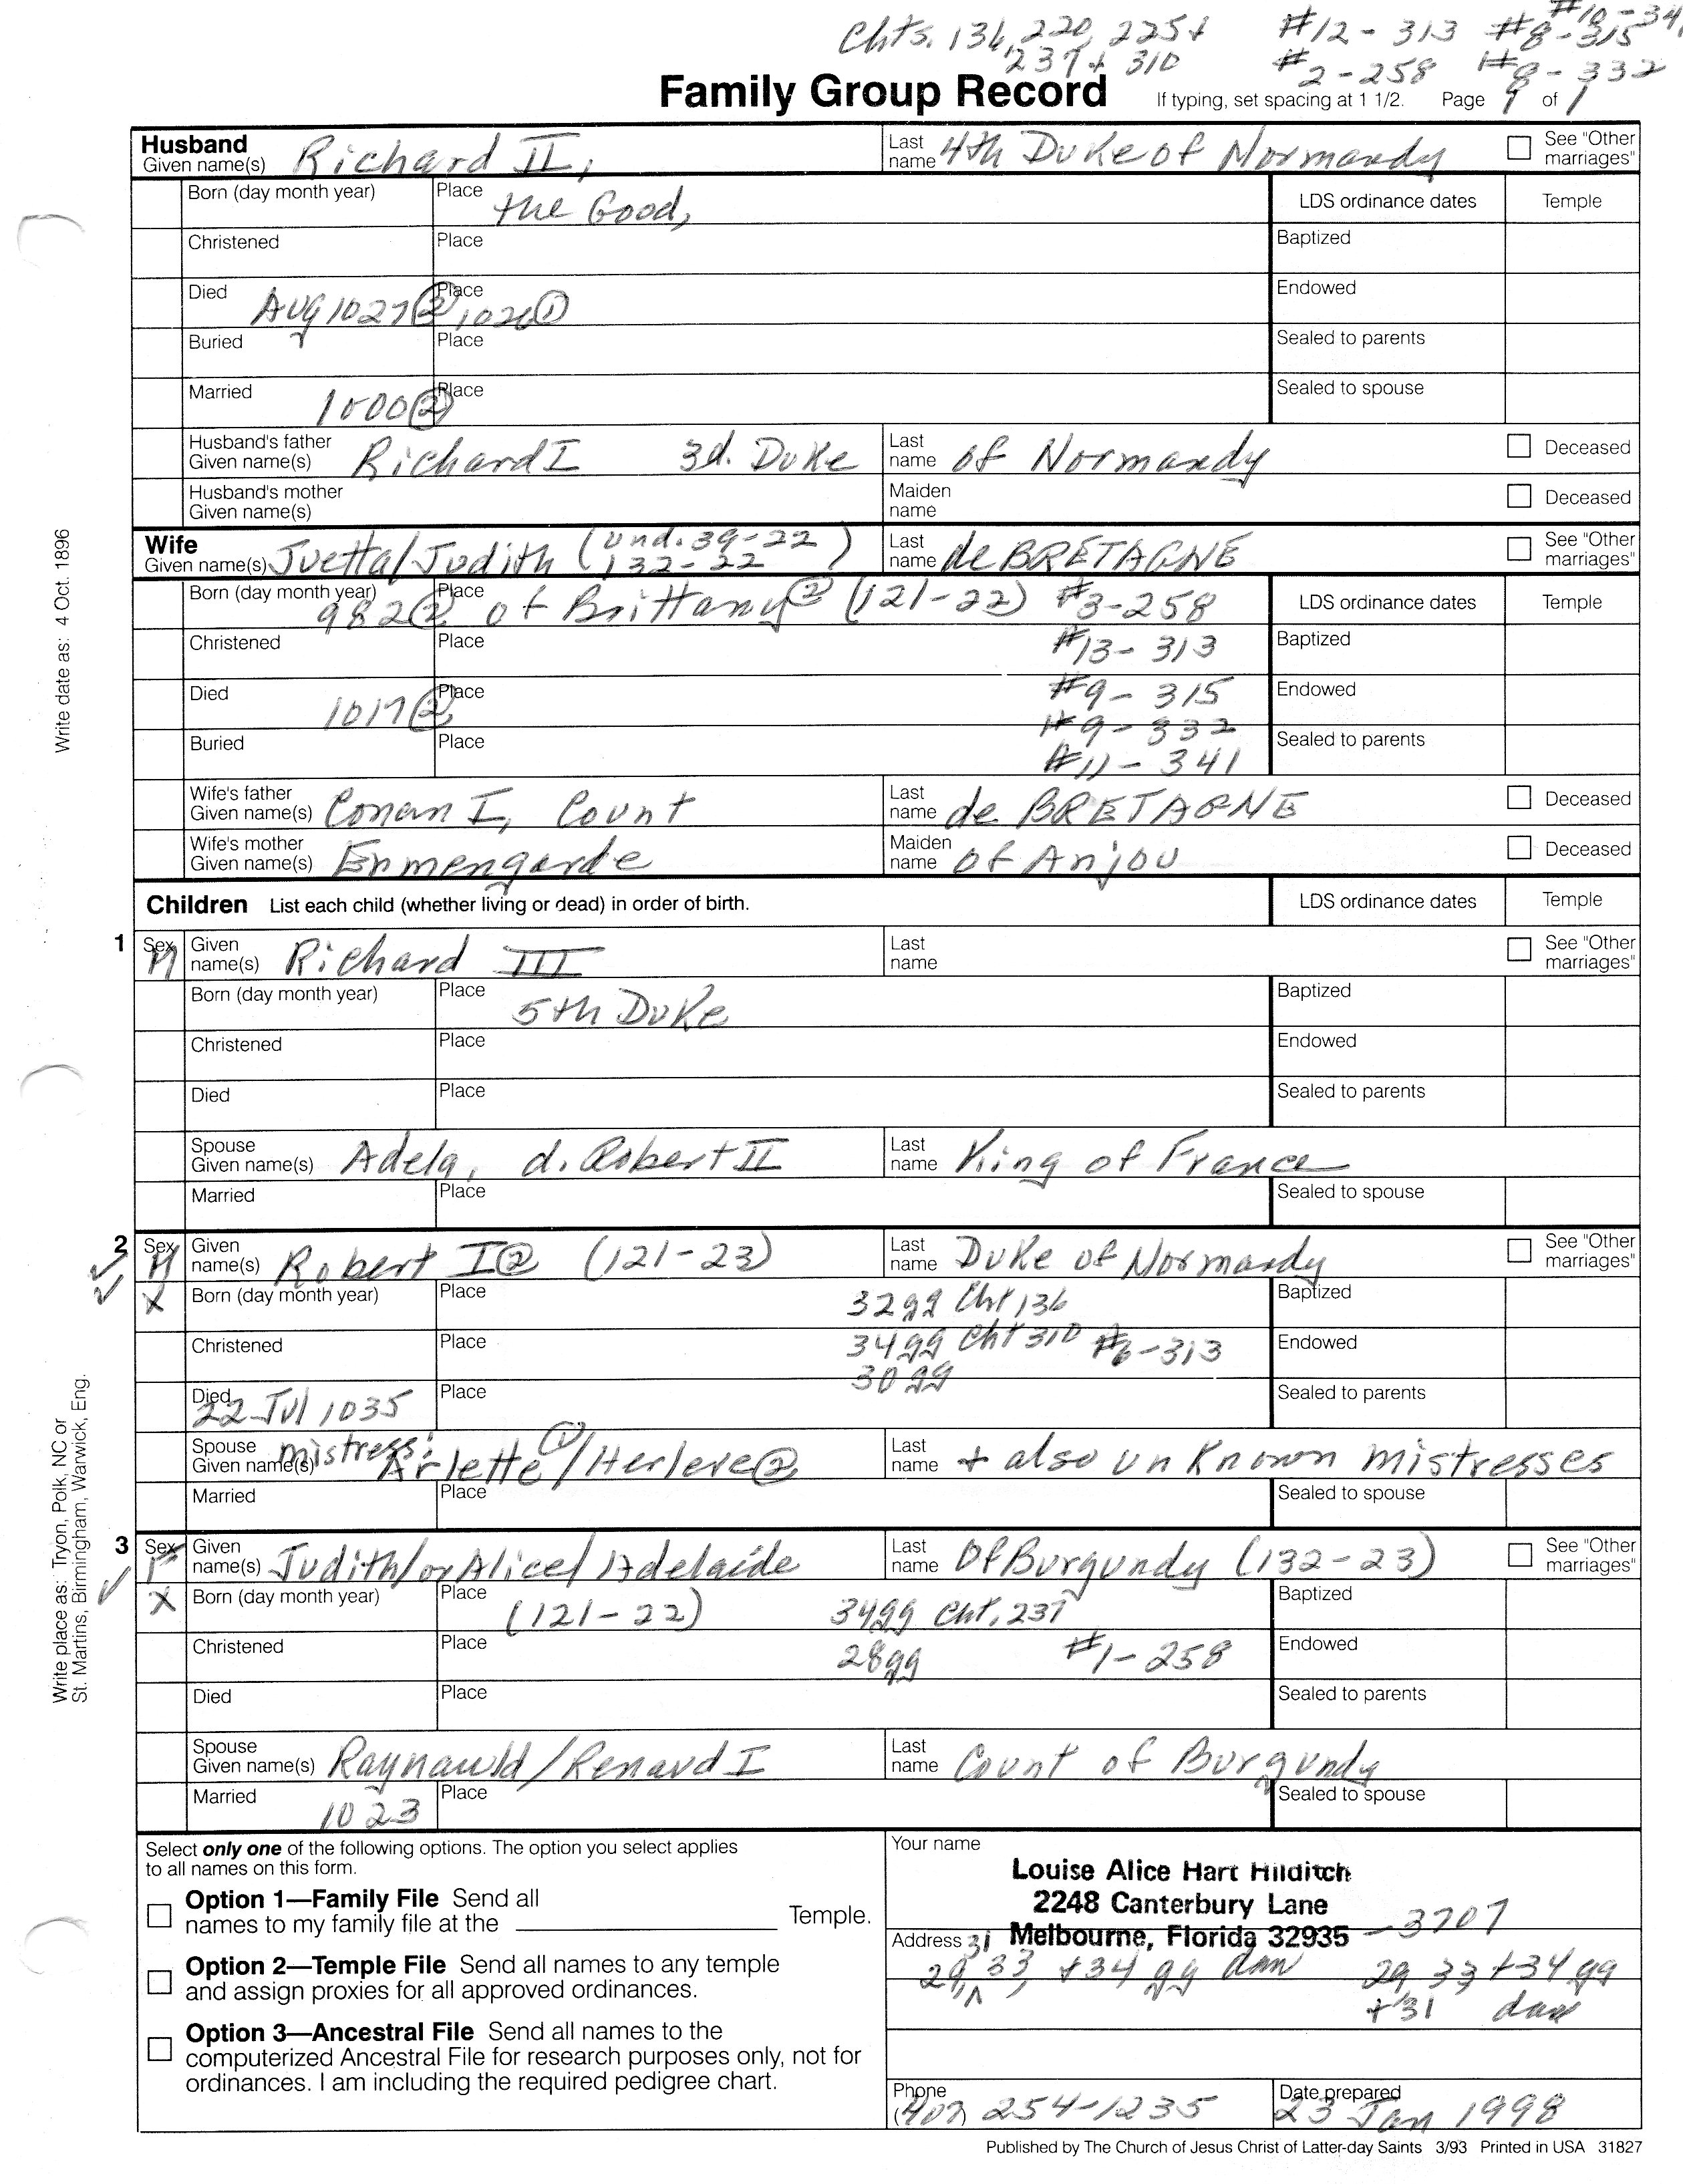 Chts. 136, 220, 225+ #12-313 #8-315 #10-341
237+ 310 #2-258 #8-332
Family Group Record If typing, set spacing at 1 1/2. Page 1 of 1
Husband Given name(s) Richard II, Last name 4th Duke of Normandy See "Other marriages"
Born (day month year) Place the Good, LDS ordinance dates Temple
Christened Place Baptized
Died Aug 1027② Place 1026① Endowed
Buried Place Sealed to parents
Married 1000② Place Sealed to spouse
Husband's father Given name(s) Richard I 3d. Duke Last name of Normandy Deceased
Husband's mother Given name(s) Maiden name Deceased
Wife Given name(s) Juetta/Judith (und. 39-22 132-22) Last name de BRETAGNE See "Other marriages"
Born (day month year) 982② Place of Brittany② (121-22) #3-258 LDS ordinance dates Temple
Christened Place #13-313 Baptized
Died 1017② Place #9-315 Endowed
#9-332
Buried Place #11-341 Sealed to parents
Wife's father Given name(s) Conan I, Count Last name de BRETAGNE Deceased
Wife's mother Given name(s) Enmengarde Maiden name of Anjou Deceased
Children List each child (whether living or dead) in order of birth. LDS ordinance dates Temple
1 Sex M Given name(s) Richard III Last name See "Other marriages"
Born (day month year) Place 5th Duke Baptized
Christened Place Endowed
Died Place Sealed to parents
Spouse Given name(s) Adela, d. Robert II Last name King of France
Married Place Sealed to spouse
2 Sex M Given name(s) Robert I② (121-23) Last name Duke of Normandy See "Other marriages"
X Born (day month year) Place 32gg Cht 136 Baptized
Christened Place 34gg Cht 310 #6-313 Endowed
30gg
Died 22 Jul 1035 Place Sealed to parents
Spouse Given name(s) mistress: Arlette①/Herleve② Last name + also unknown mistresses
Married Place Sealed to spouse
3 Sex F Given name(s) Judith/or Alice/Adelaide Last name Of Burgundy (132-23) See "Other marriages"
X Born (day month year) Place (121-22) 34gg Cht. 237 Baptized
Christened Place 28gg #1-258 Endowed
Died Place Sealed to parents
Spouse Given name(s) Raynauld/Renaud I Last name Count of Burgundy
Married 1023 Place Sealed to spouse
Select only one of the following options. The option you select applies
to all names on this form.
Option 1—Family File Send all
names to my family file at the Temple.
Option 2—Temple File Send all names to any temple
and assign proxies for all approved ordinances.
Option 3—Ancestral File Send all names to the
computerized Ancestral File for research purposes only, not for
ordinances. I am including the required pedigree chart.
Your name
Louise Alice Hart Hilditch
2248 Canterbury Lane
Address Melbourne, Florida 32935 -3707
31
29, 33, +34 gg dau 29, 33 +34 gg
+31 dau
Phone (407) 254-1235 Date prepared 23 Jan 1998
Published by The Church of Jesus Christ of Latter-day Saints 3/93 Printed in USA 31827
Write date as: 4 Oct. 1896
Write place as: Tryon, Polk, NC or
St. Martins, Birmingham, Warwick, Eng.